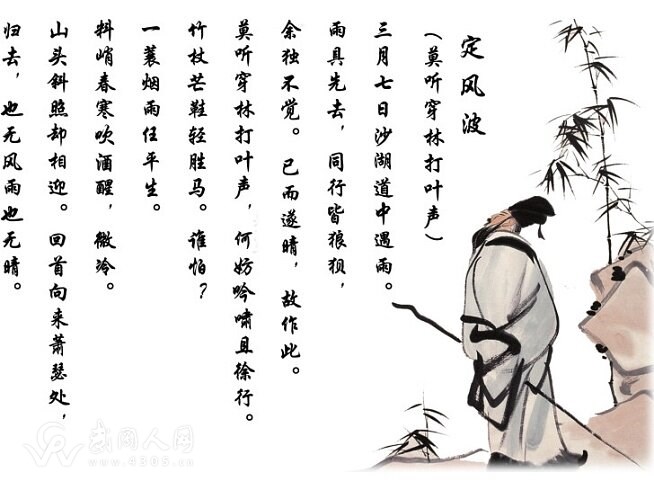 定风波
（莫听穿林打叶声）
三月七日沙湖道中遇雨。
雨具先去，同行皆狼狈，
余独不觉。已而遂晴，故作此。
莫听穿林打叶声，何妨吟啸且徐行。
竹杖芒鞋轻胜马。谁怕？
一蓑烟雨任平生。
料峭春寒吹酒醒，微冷。
山头斜照却相迎。回首向来萧瑟处，
归去，也无风雨也无晴。
武冈人网
www.4305.cn